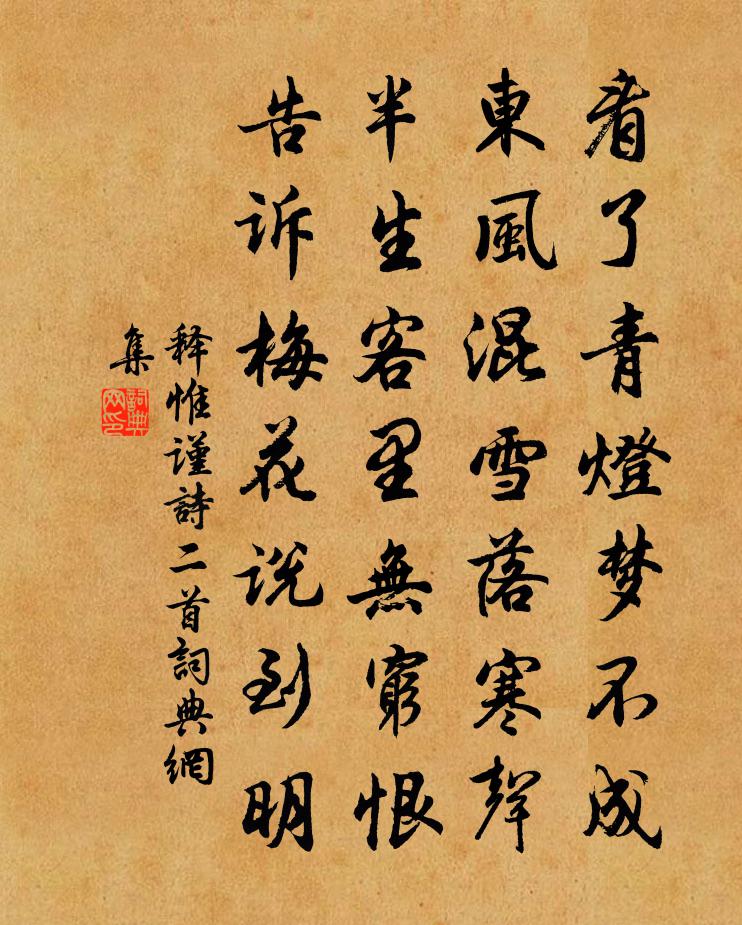 看了青燈梦不成
東風混雪落寒聲
半生客里無窮恨
告诉梅花说到明
释惟谨詩二首詞典網
集
詞典网印